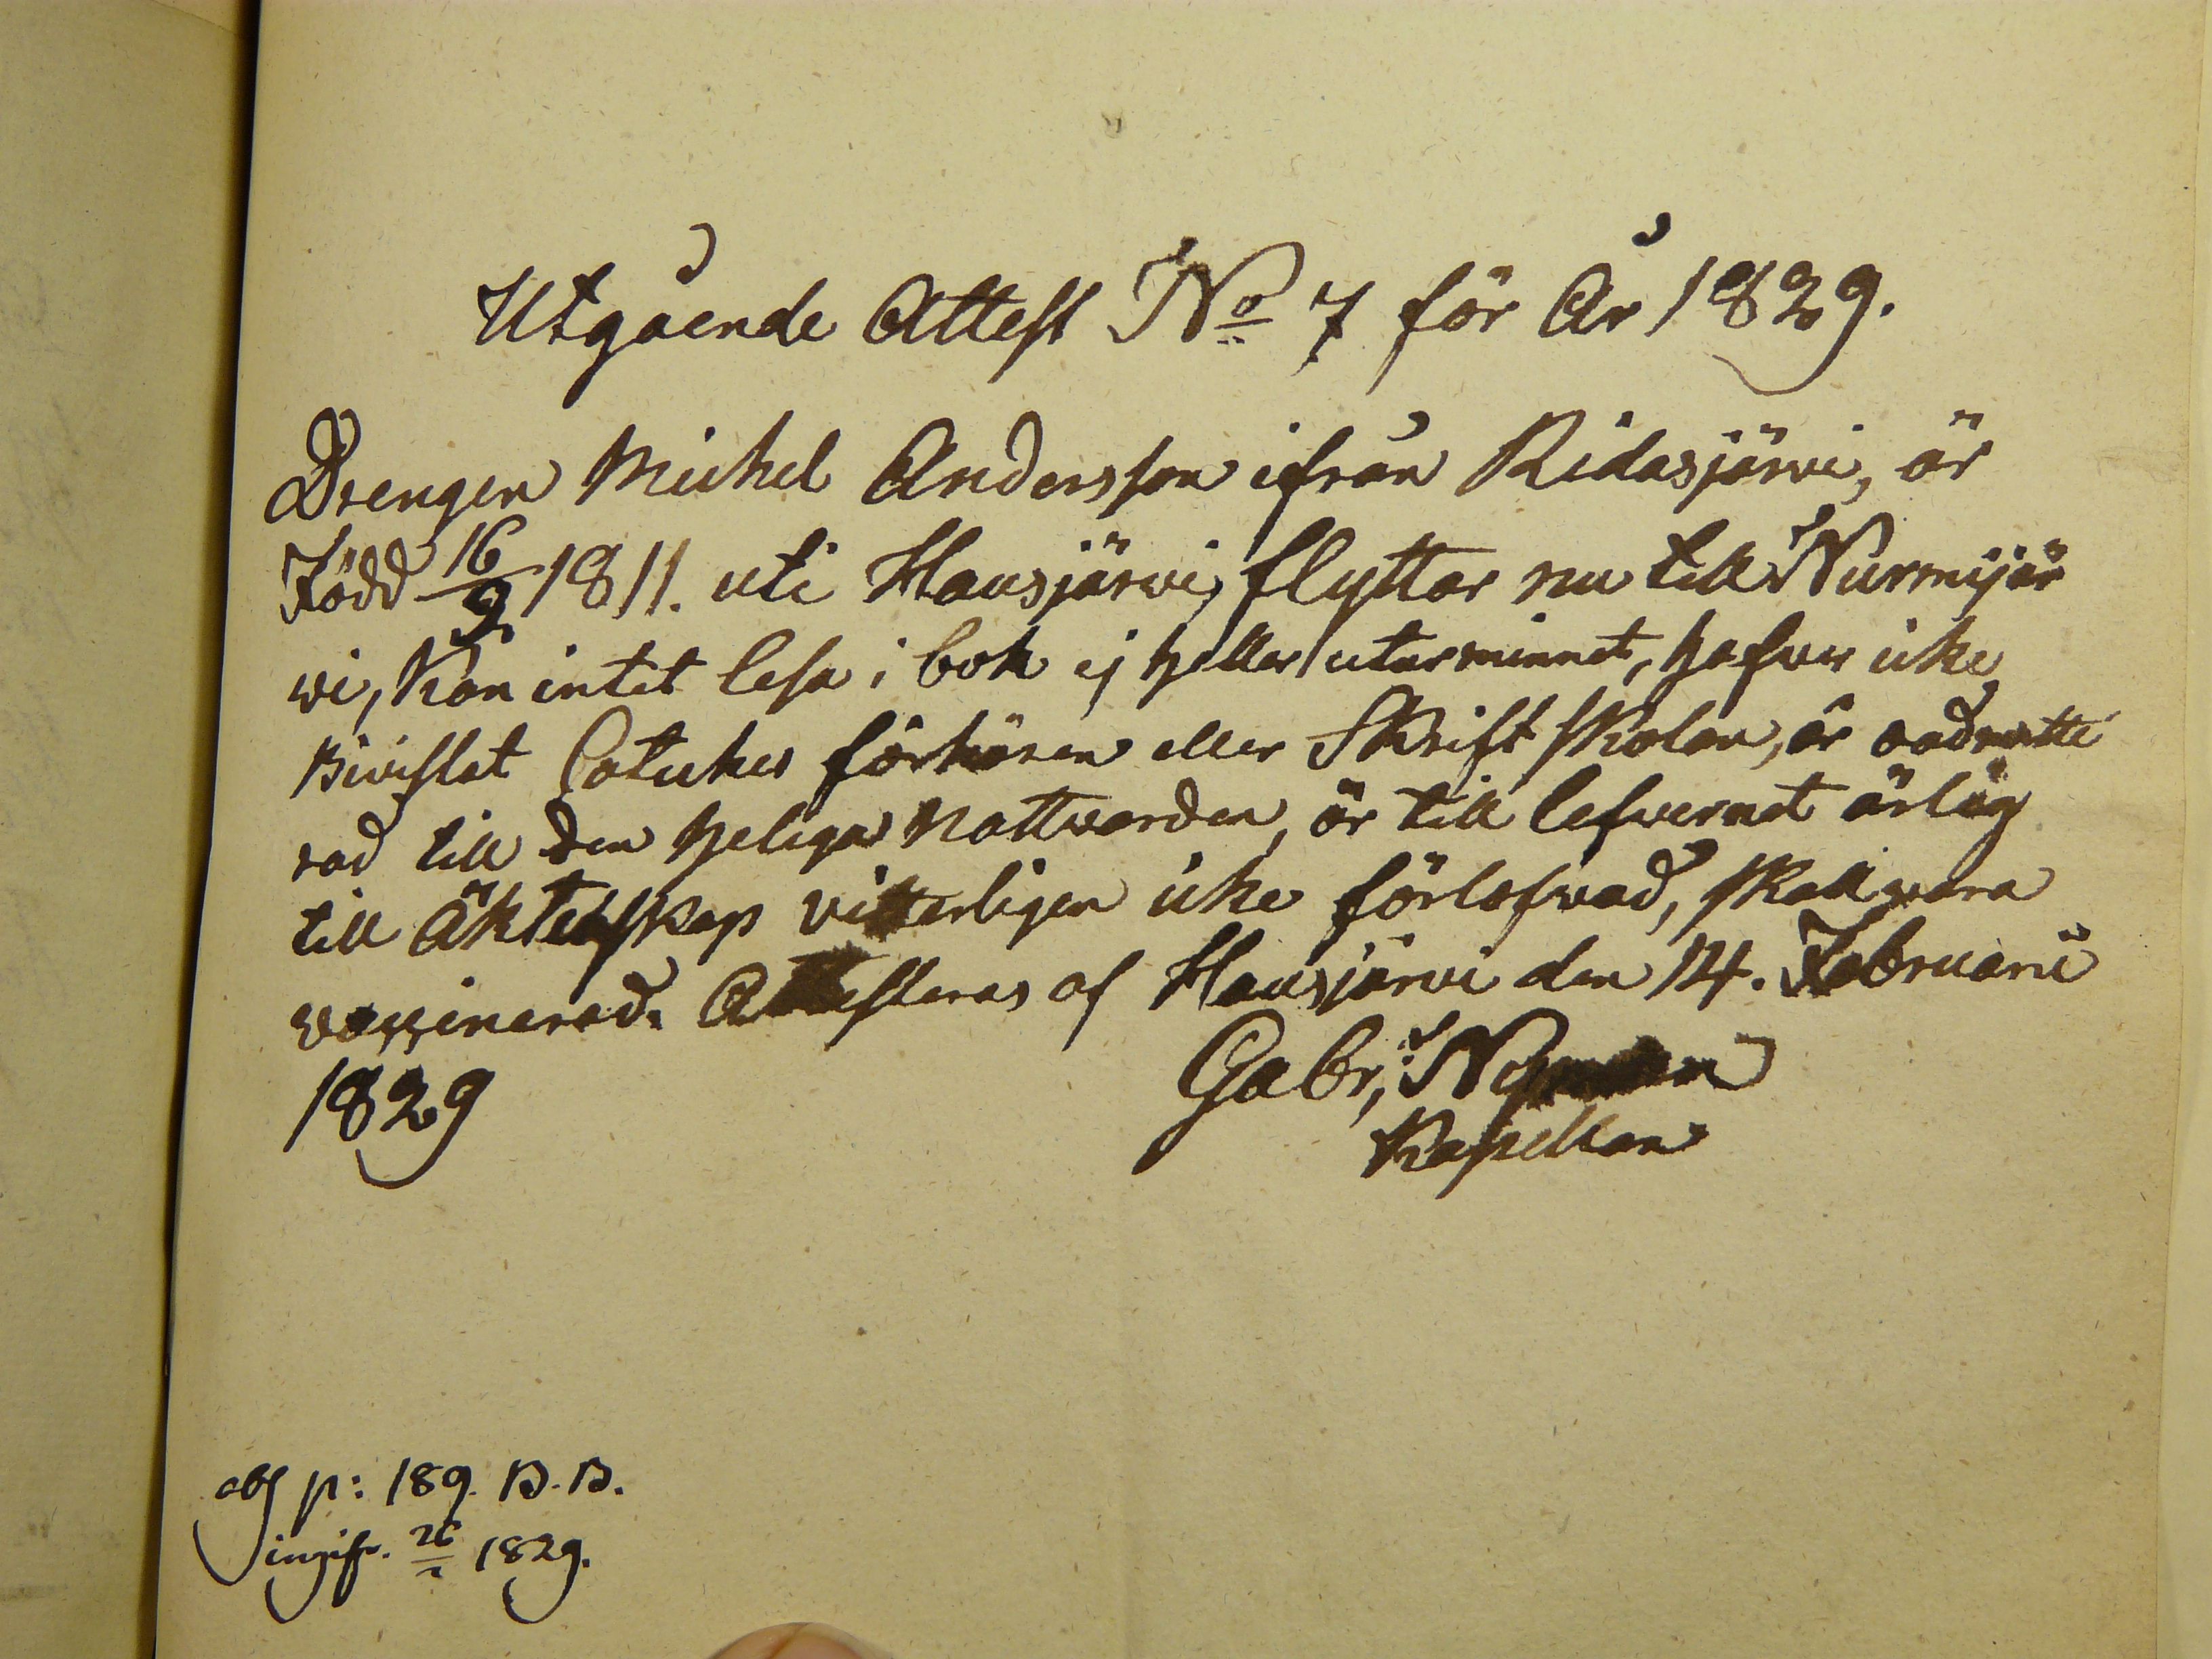 Utgående Attest No 7 för År 1829.
Drengen Michel Andersson ifrån Ridasjärwi, är
Född 16/9 1811. uti Hausjärwi, flyttar nu till Nurmijär
wi, Kan intet lesa i bok ej heller utur minnet, hafwer icke
Biwistat Catuches förhören eller Skrift Skolan, är oadmitte
rad till den heliga Nattwarden, är till lefwernet ärlig
till Äktenskap vitterligen icke förlofwad, skall wara
waxxinerad. Attesteras af Hausjärwi den 14. Februarii
1829
Gabr, Nyman
Kapellan
abs p: 189. B.B.
ingifv. 26/2 1829.